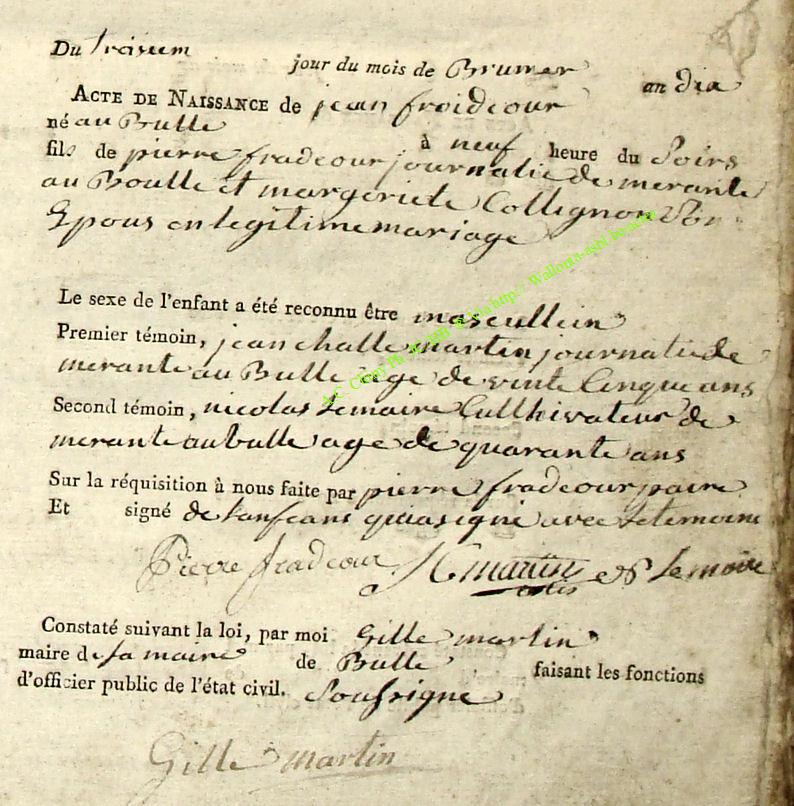 Du troisiem jour du mois de Brumer an dix
ACTE DE NAISSANCE de jean froidcour
né au Bulle à neuf heure du Soirs
fils de pierre fradcour journalie de merante
au Boulle et margoriete Collignon Son
Epous en legitime mariage
Le sexe de l'enfant a été reconnu être mascullein
Premier témoin, jean challe martin journalie de
merante au Bulle age de vinte Cinque ans
Second témoin, nicolas Lemaire Culthivateur de
merante au bulle age de quarante ans
Sur la réquisition à nous faite par pierre fradcour paire
Et signé de Lanfeans qui a signé avec Le temoins
Pierre fradcour martin Lemaire
Constaté suivant la loi, par moi Gille martin
maire de la maire de Bulle faisant les fonctions
d'officier public de l'état civil. Soussigne
Gille martin